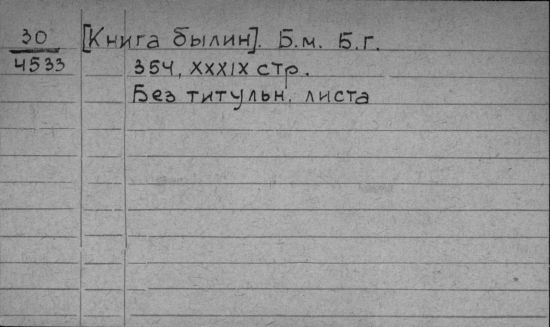 30 [Книга былин]. Б.м. Б.г.
4533 354, XXXIX стр.
Без титульн. листа